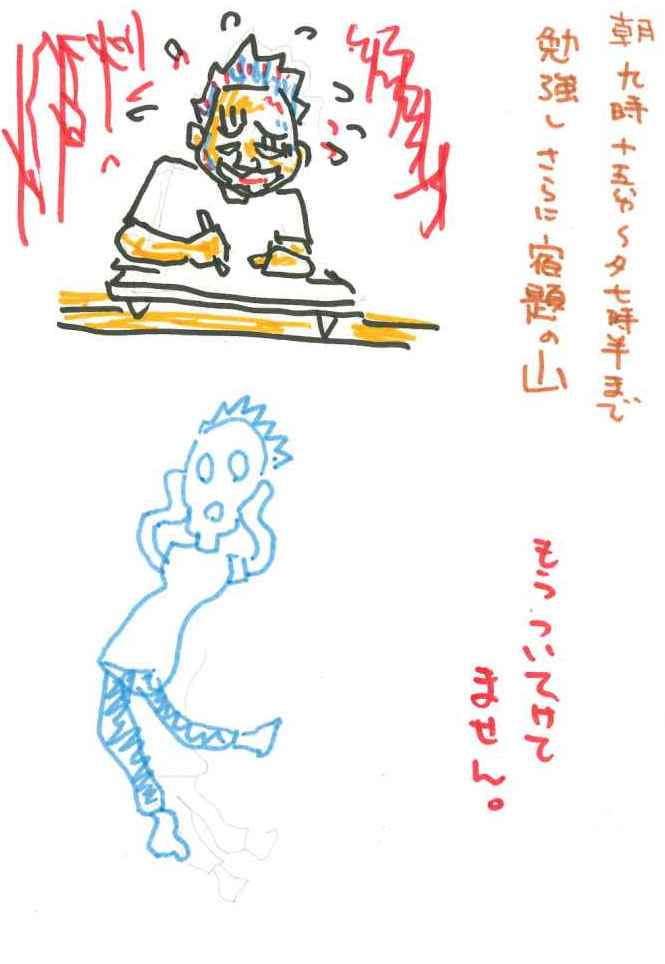 朝九時十五分〜夕七時半まで
勉強しさらに宿題の山
もうついてけて
ません。